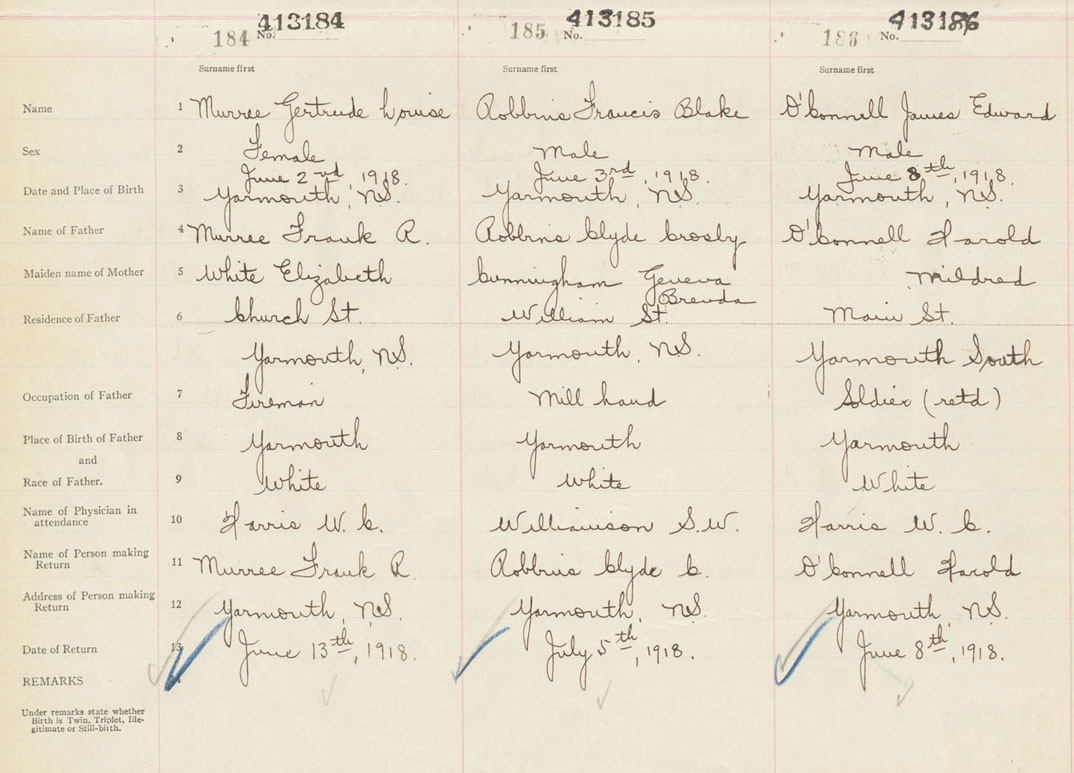 413184 413185 413186
184 No. 185 No. 186 No.
Surname first Surname first Surname first
Name 1 Murree Gertrude Louise Robbins Francis Blake O'Connell James Edward
Sex 2 Female Male Male
June 2nd, 1918. June 3rd, 1918. June 8th, 1918.
Date and Place of Birth 3 Yarmouth, N.S. Yarmouth, N.S. Yarmouth, N.S.
Name of Father 4 Murree Frank R. Robbins Clyde Crosby O'Connell Harold
Maiden name of Mother 5 White Elizabeth Cunningham Geneva Mildred
Brenda
Residence of Father 6 Church St. William St. Main St.
Yarmouth, N.S. Yarmouth, N.S. Yarmouth South
Occupation of Father 7 Fireman Mill hand Soldier (retd)
Place of Birth of Father 8 Yarmouth Yarmouth Yarmouth
and
Race of Father. 9 White White White
Name of Physician in
attendance 10 Harris W. C. Williamson S.W. Harris W. C.
Name of Person making
Return 11 Murree Frank R. Robbins Clyde C. O'Connell Harold
Address of Person making
Return 12 Yarmouth, N.S. Yarmouth, N.S. Yarmouth, N.S.
Date of Return 13 June 13th, 1918. July 5th, 1918. June 8th, 1918.
REMARKS 14
Under remarks state whether
Birth is Twin, Triplet, Ille-
gitimate or Still-birth.